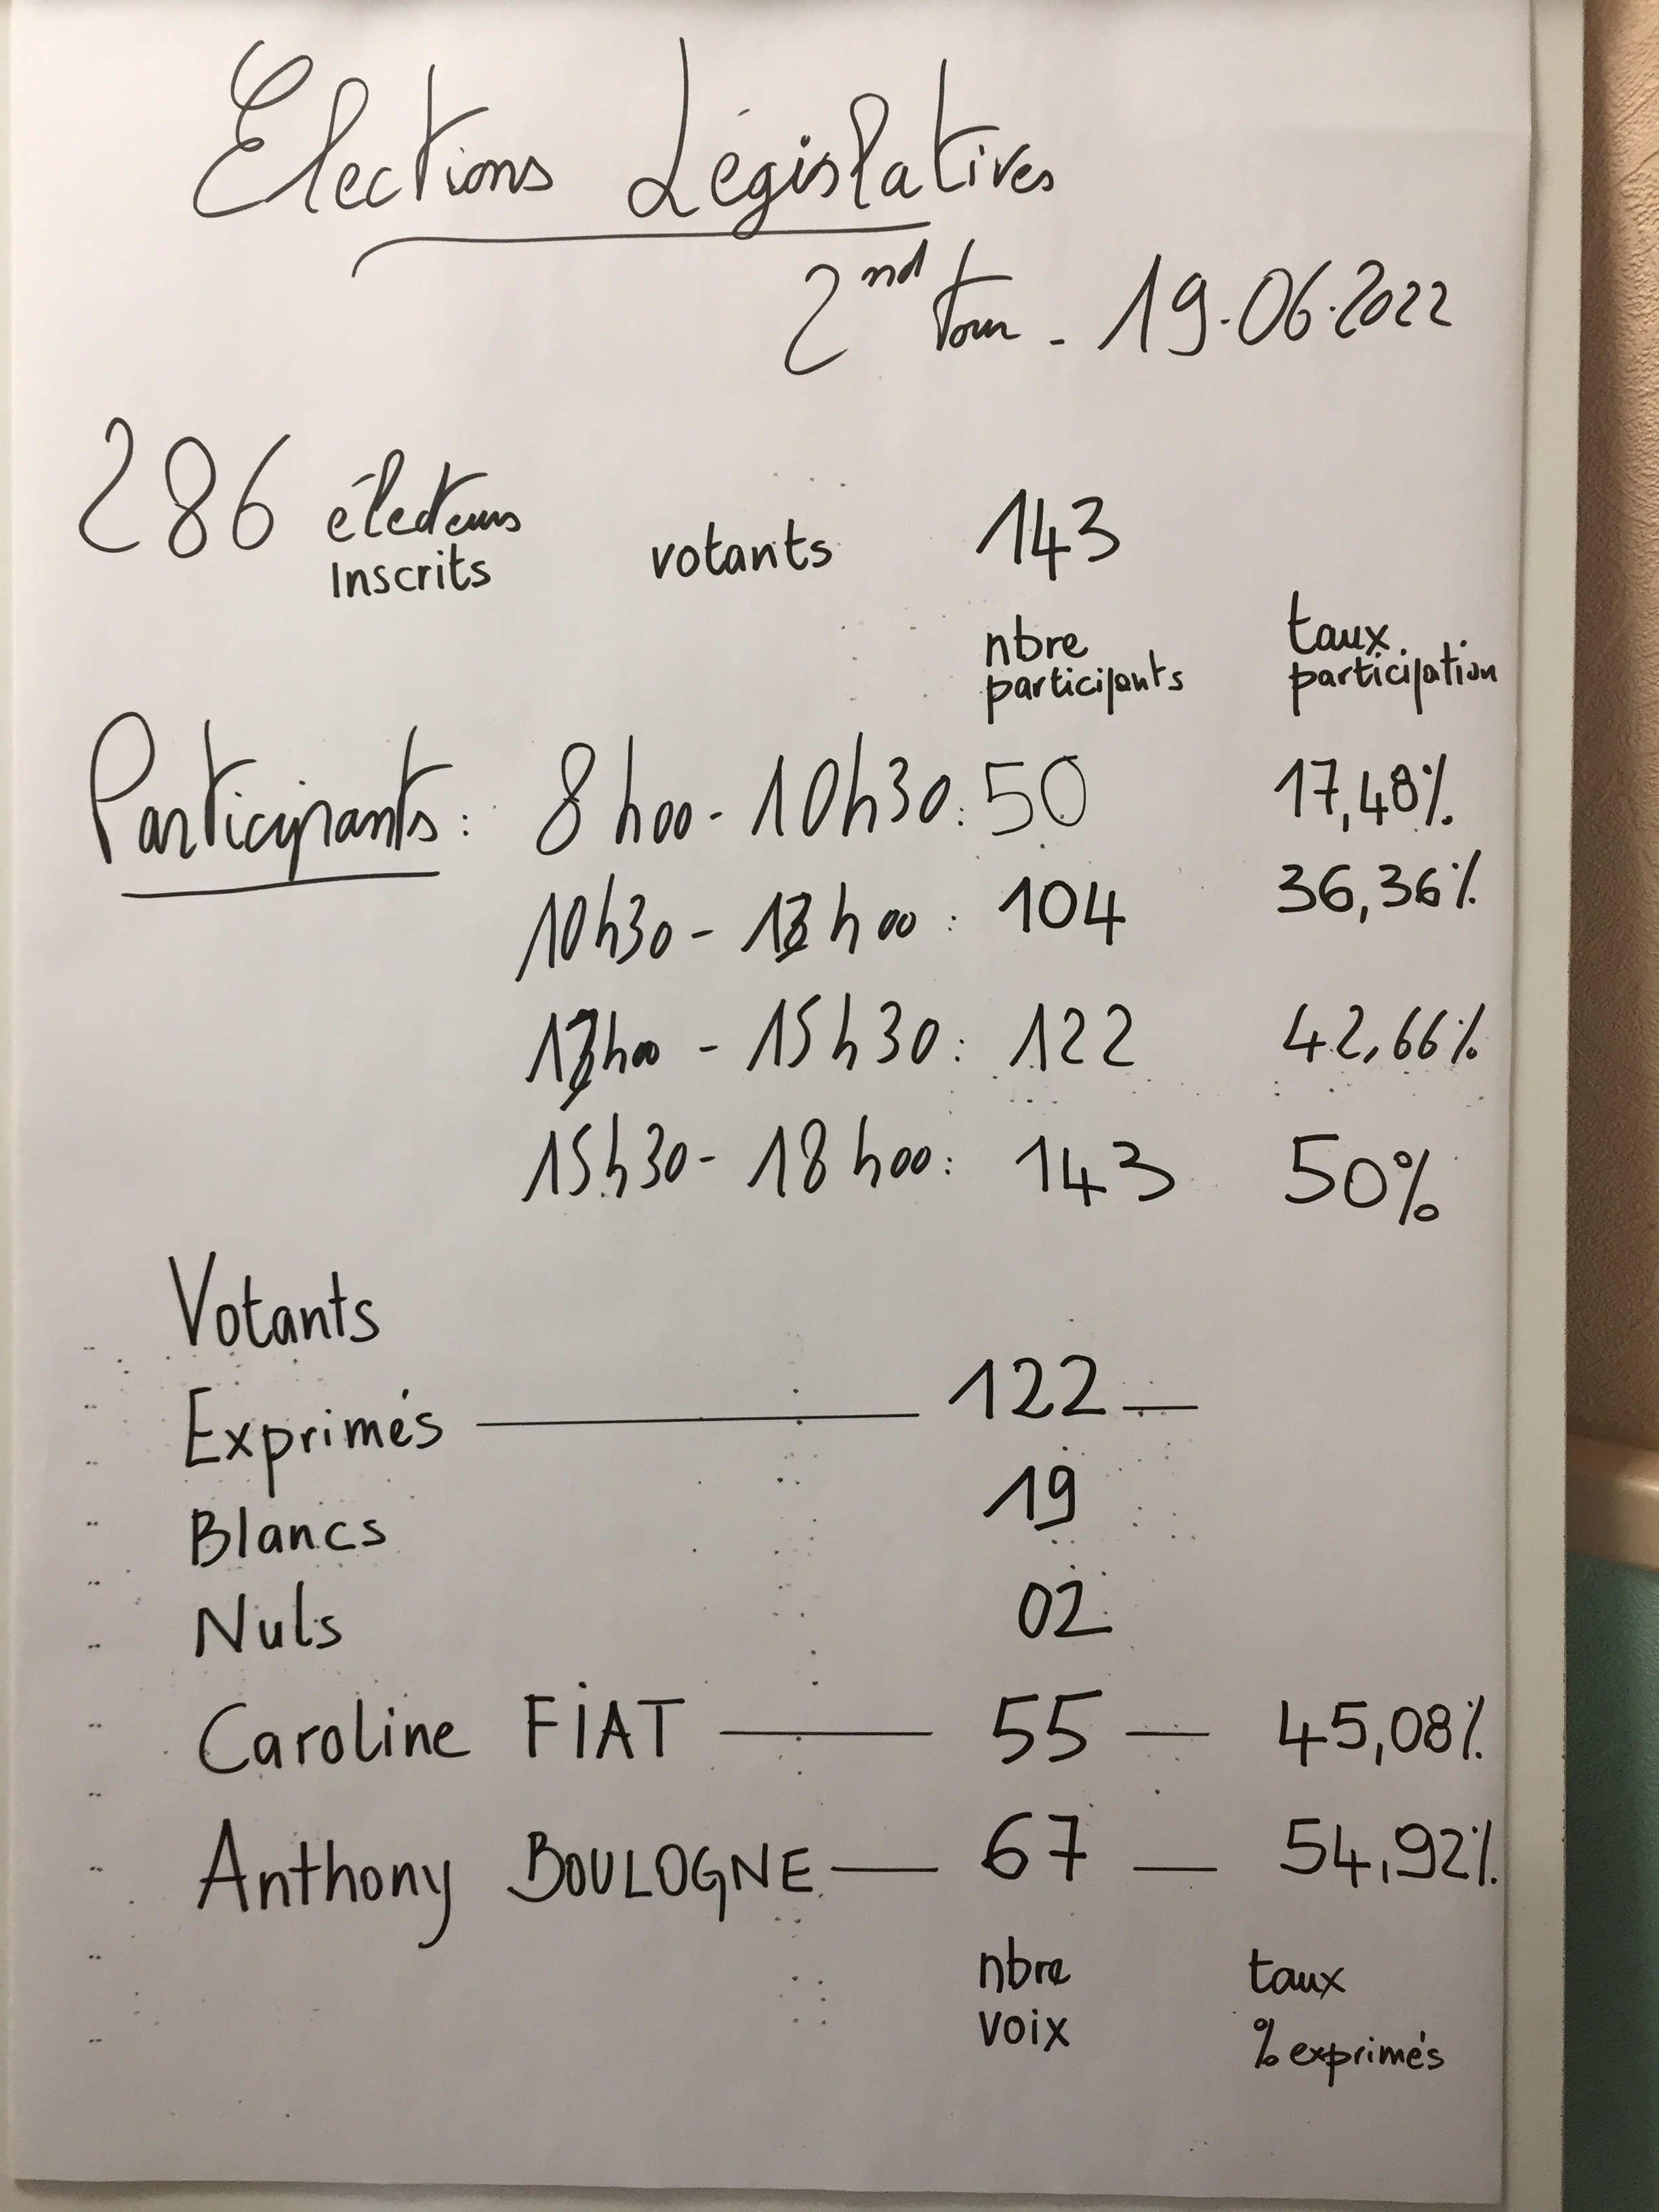 Elections Législatives
2nd tour - 19.06.2022
286 électeurs inscrits votants 143
nbre participants taux participation
Participants : 8h00 - 10h30 : 50 17,48%
10h30 - 13h00 : 104 36,36%
13h00 - 15h30 : 122 42,66%
15h30 - 18h00 : 143 50%
Votants
Exprimés — 122 —
Blancs 19
Nuls 02
Caroline FIAT — 55 — 45,08%
Anthony BOULOGNE — 67 — 54,92%
nbre voix taux % exprimés